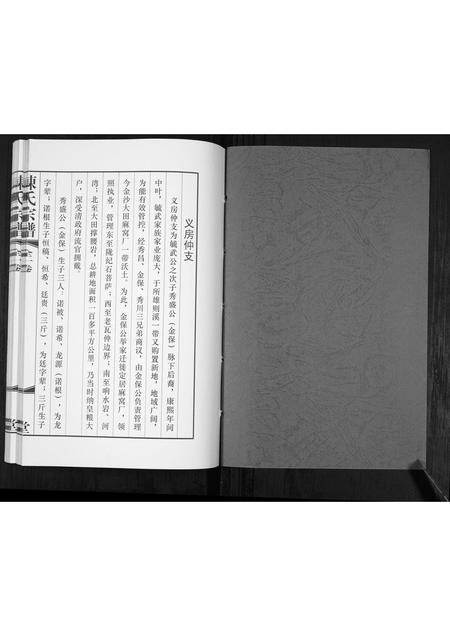 义房仲支
义房仲支为毓武公之次子秀盛公（金保）脉下后裔，康熙年间
中叶，毓武家族家业庞大，于所雄则溪一带又购置新地，地域广阔，
为能有效管控，经秀昌、金保、秀川三兄弟商议，由金保公负责管理
今金沙大田麻窝厂一带沃土。为此，金保公举家迁徙定居麻窝厂，领
照执业，管理东至陇纪石菩萨；西至老瓦仲边界；南至响水岩、河
湾；北至大田撑腰岩，总耕地面积一百多平方公里，乃当时纳皇粮大
户，深受清政府流官拥戴。
秀盛公（金保）生子三人：诺被、诺希、龙源（诺根），为龙
字辈；诺根生子恒稿、恒希、廷贵（三斤），为廷字辈；三斤生子
陳氏宗譜